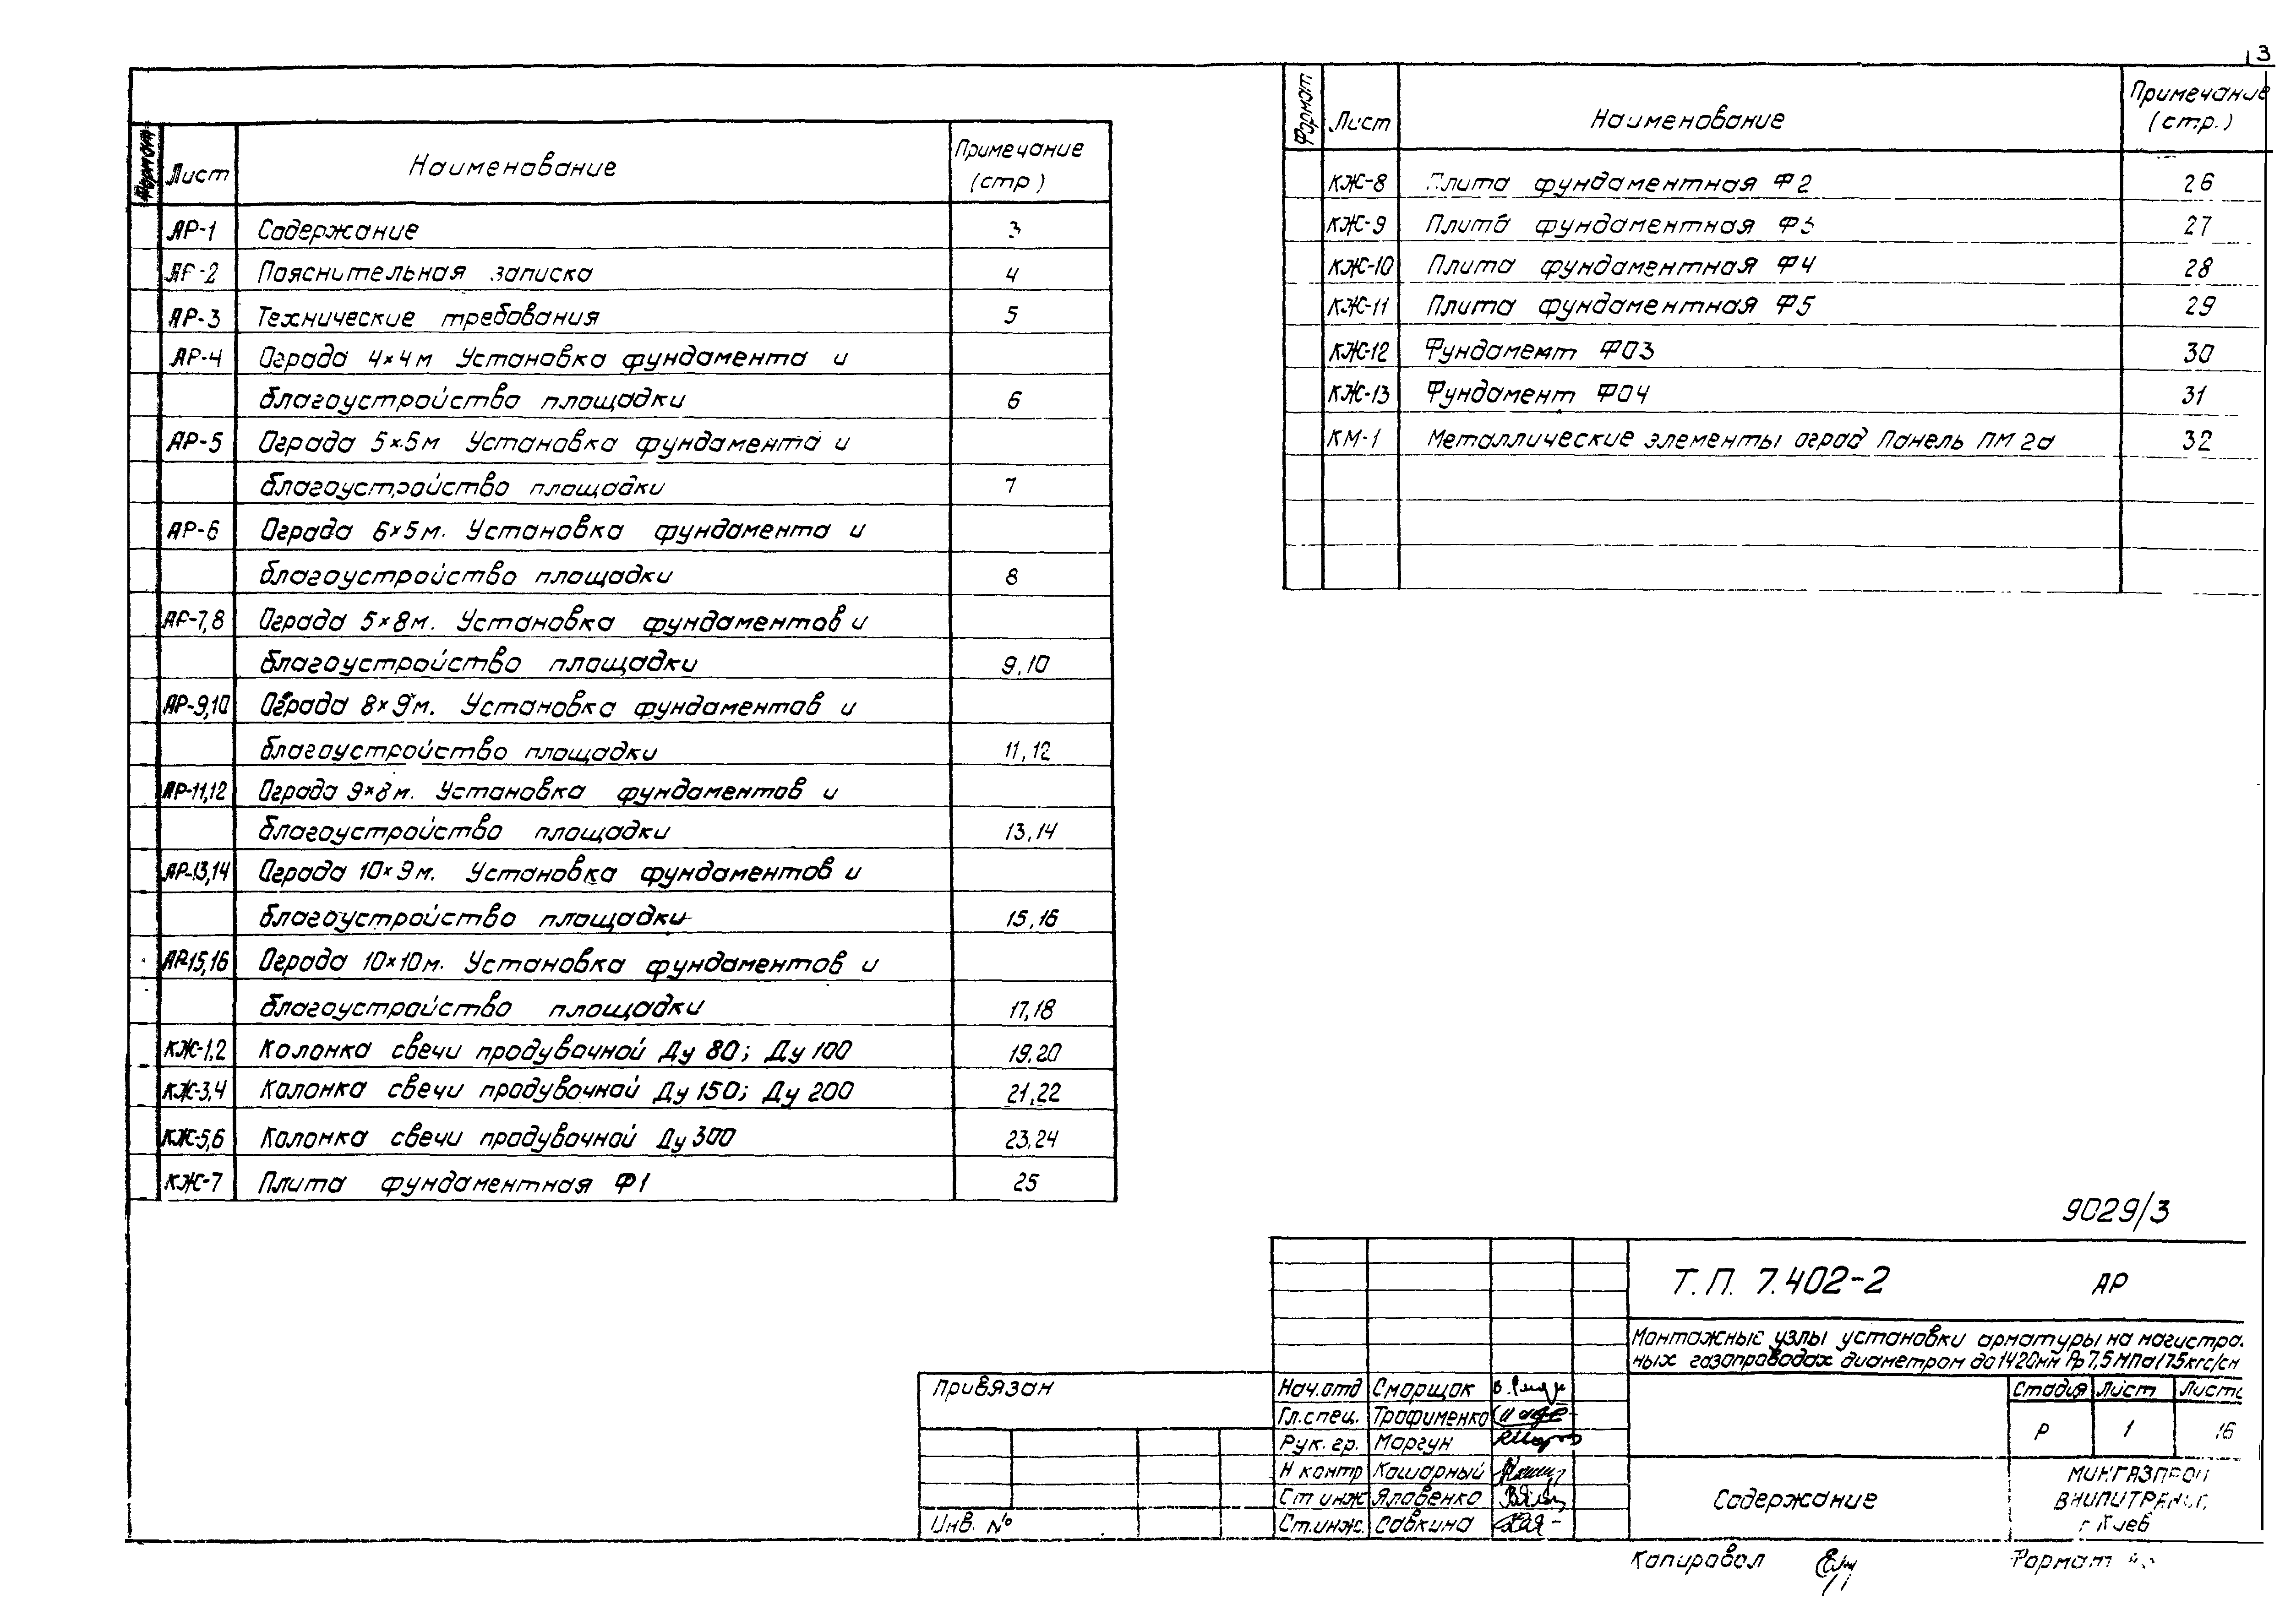 3
Формат Лист Наименование Примечание (стр)
АР-1 Содержание 3
АР-2 Пояснительная записка 4
АР-3 Технические требования 5
АР-4 Ограда 4×4м Установка фундамента и
благоустройство площадки 6
АР-5 Ограда 5×5м Установка фундамента и
благоустройство площадки 7
АР-6 Ограда 6×5м. Установка фундамента и
благоустройство площадки 8
АР-7,8 Ограда 5×8м. Установка фундаментов и
благоустройство площадки 9,10
АР-9,10 Ограда 8×9м. Установка фундаментов и
благоустройство площадки 11,12
АР-11,12 Ограда 9×8м. Установка фундаментов и
благоустройство площадки 13,14
АР-13,14 Ограда 10×9м. Установка фундаментов и
благоустройство площадки 15,16
АР-15,16 Ограда 10×10м. Установка фундаментов и
благоустройство площадки 17,18
КЖ-1,2 Колонка свечи продувочной Ду 80; Ду 100 19,20
КЖ-3,4 Колонка свечи продувочной Ду 150; Ду 200 21,22
КЖ-5,6 Колонка свечи продувочной Ду 300 23,24
КЖ-7 Плита фундаментная Ф1 25
Формат Лист Наименование Примечание (стр.)
КЖ-8 Плита фундаментная Ф2 26
КЖ-9 Плита фундаментная Ф3 27
КЖ-10 Плита фундаментная Ф4 28
КЖ-11 Плита фундаментная Ф5 29
КЖ-12 Фундамент ФО3 30
КЖ-13 Фундамент ФО4 31
КМ-1 Металлические элементы оград Панель ПМ 2а 32
9029/3
Т.П. 7.402-2 АР
Монтажные узлы установки арматуры на магистра
ных газопроводах диаметром до 1420мм Рр 7,5 МПа (75кгс/см
Привязан
Инв. №
Нач.отд Сморщок
Гл.спец. Трофименко
Рук. гр. Моргун
Н контр Кошарный
Ст инж Яловенко
Ст.инж. Савкина
Стадия Лист Листо
Р 1 16
Содержание
МИНГАЗПРОМ
ВНИПИТРАНСГ
г Киев
Копировал Формат